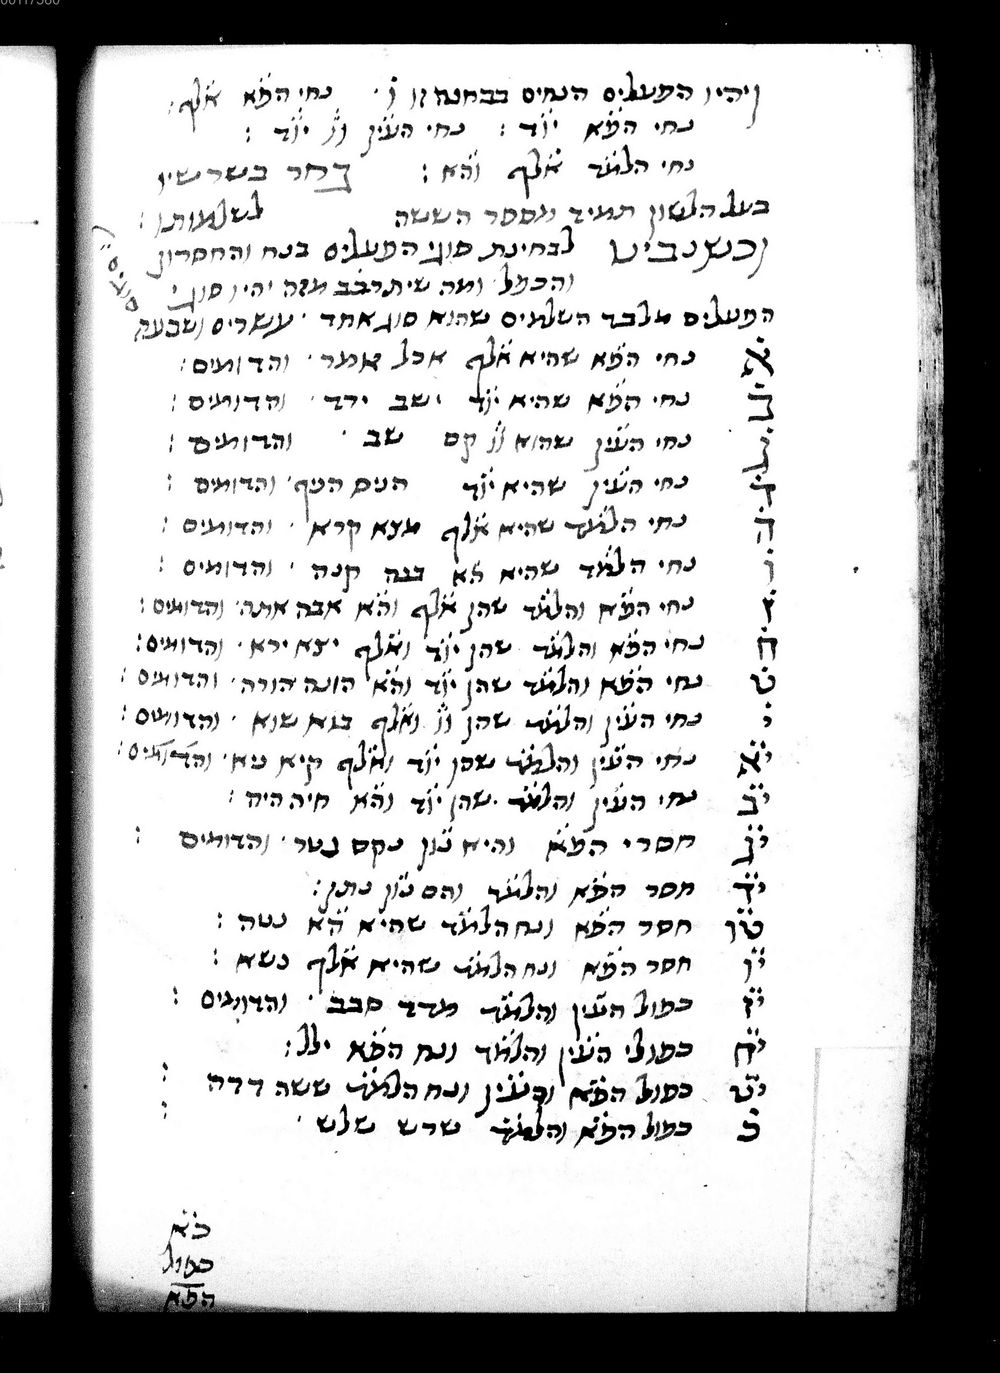 ויהיו הפעלים הנחים בבחנה זו ו׳ נחי הפ̇א̇ אלף:
נחי הפ̇א̇ יו̇ד̇ : נחי העי̇ן̇ ו̇ו̇ יו̇ד̇ :
נחי הלמ̇ד̇ אלף וה̇א̇ : בחר בשרשיו
בעל הלשון תמיד מספר הששה לשלמותו :
וכשנביט לבחינת סוגי הפעלים בנח והחסרון
והכפל ומה שיתרכב מזה יהיו סוגי
הפעלים מלבד השלמים שהוא סוג אחד עשרים ושבעה
סוגים
א נחי הפ̇א̇ שהיא אלף אכל אמר והדומים:
ב נחי הפ̇א̇ שהיא יו̇ד̇ ישב ירד והדומים :
ג נחי העי̇ן̇ שהוא ו̇ו̇ קם שב והדומים :
ד נחי העי̇ן̇ שהיא יו̇ד̇ הניס הניף והדומים :
ה נחי הלמ̇ד̇ שהיא אלף מצא קרא והדומים :
ו נחי הלמ̇ד̇ שהיא ה̇א̇ בנה קנה והדומים :
ז נחי הפ̇א̇ והלמ̇ד̇ שהן אלף וה̇א̇ אבה אתה והדומים :
ח נחי הפ̇א̇ והלמ̇ד̇ שהן יו̇ד̇ ואלף יצא ירא והדומים :
ט נחי הפ̇א̇ והלמ̇ד̇ שהן יו̇ד̇ וה̇א̇ הונה הורה והדומים :
י נחי העי̇ן̇ והלמ̇ד̇ שהן ו̇ו̇ ואלף בוא שוא והדומים :
י̇א̇ נחי העי̇ן̇ והלמ̇ד̇ שהן יו̇ד̇ ואלף קיא ניא והדומים :
י̇ב̇ נחי העי̇ן̇ והלמ̇ד̇ שהן יו̇ד̇ וה̇א̇ חיה היה :
י̇ג̇ חסרי הפ̇א̇ והיא נו̇ן̇ נקם נטר והדומים :
י̇ד̇ חסר הפ̇א̇ והלמ̇ד̇ והם נו̇ן̇ נתן :
ט̇ו̇ חסר הפ̇א̇ ונח הלמ̇ד̇ שהיא ה̇א̇ נטה :
י̇ו̇ חסר הפ̇א̇ ונח הלמ̇ד̇ שהיא אלף נשא :
י̇ז̇ כפול העי̇ן̇ והלמ̇ד̇ מדד סבב והדומים :
י̇ח̇ כפולי העי̇ן̇ והלמ̇ד̇ ונח הפ̇א̇ ילל :
י̇ט̇ כפול הפ̇א̇ והעי̇ן̇ ונח הלמ̇ד̇ ששה דדה :
כ כפול הפ̇א̇ והלמ̇ד̇ שרש שלש :
כ̇א̇
כפול
הפא